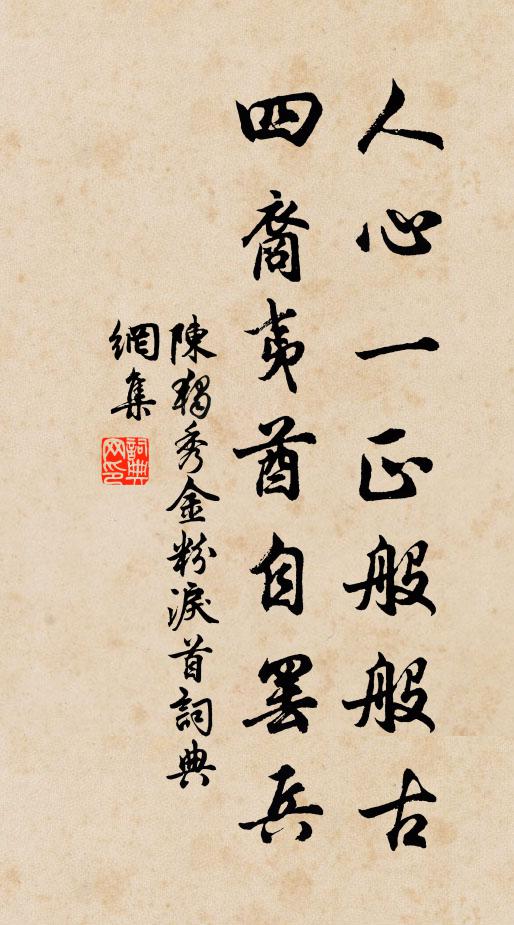 人心一正般般古
四裔夷酋自罢兵
陳獨秀金粉淚首詞典
網集
詞典网印